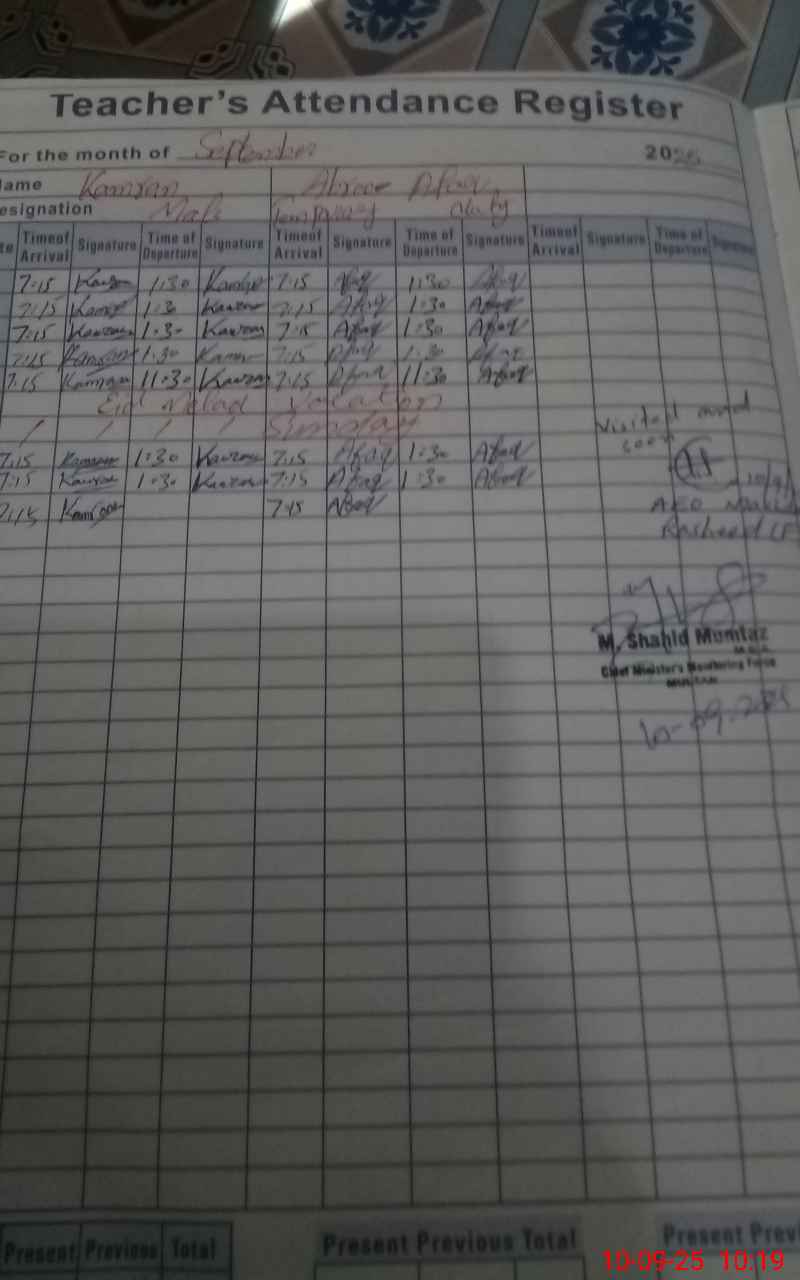 Teacher's Attendance Register
For the month of September 2025
Name Kamran Afaq
Designation Mali Temporary duty
Time of Arrival Signature Time of Departure Signature Time of Arrival Signature Time of Departure Signature Time of Arrival Signature Time of Departure Signature
7:15 Kamran 1:30 Kamran 7:15 Afaq 1:30 Afaq
7:15 Kamran 1:30 Kamran 7:15 Afaq 1:30 Afaq
7:15 Kamran 1:30 Kamran 7:15 Afaq 1:30 Afaq
7:15 Kamran 1:30 Kamran 7:15 Afaq 1:30 Afaq
7:15 Kamran 11:30 Kamran 7:15 Afaq 11:30 Afaq
Eid Melad Vacation
Sunday
7:15 Kamran 1:30 Kamran 7:15 Afaq 1:30 Afaq
7:15 Kamran 1:30 Kamran 7:15 Afaq 1:30 Afaq
7:15 Kamran 7:15 Afaq
Visited and
seen
10/9/
AEO
Rasheed
M. Shahid Mumtaz
Chief Minister's Monitoring Force
MULTAN
10-09-2025
Present Previous Total Present Previous Total Present Previ
10-09-25 10:19